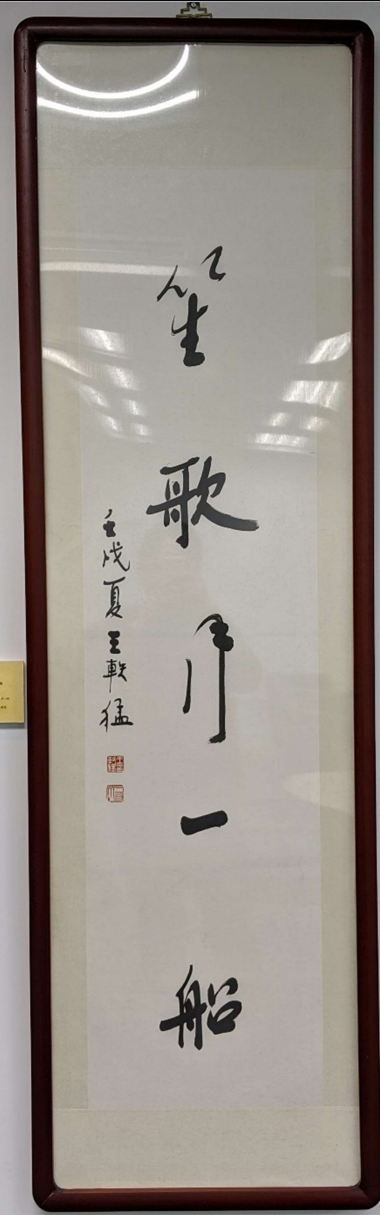 笙歌月一船
壬戌夏王軼猛